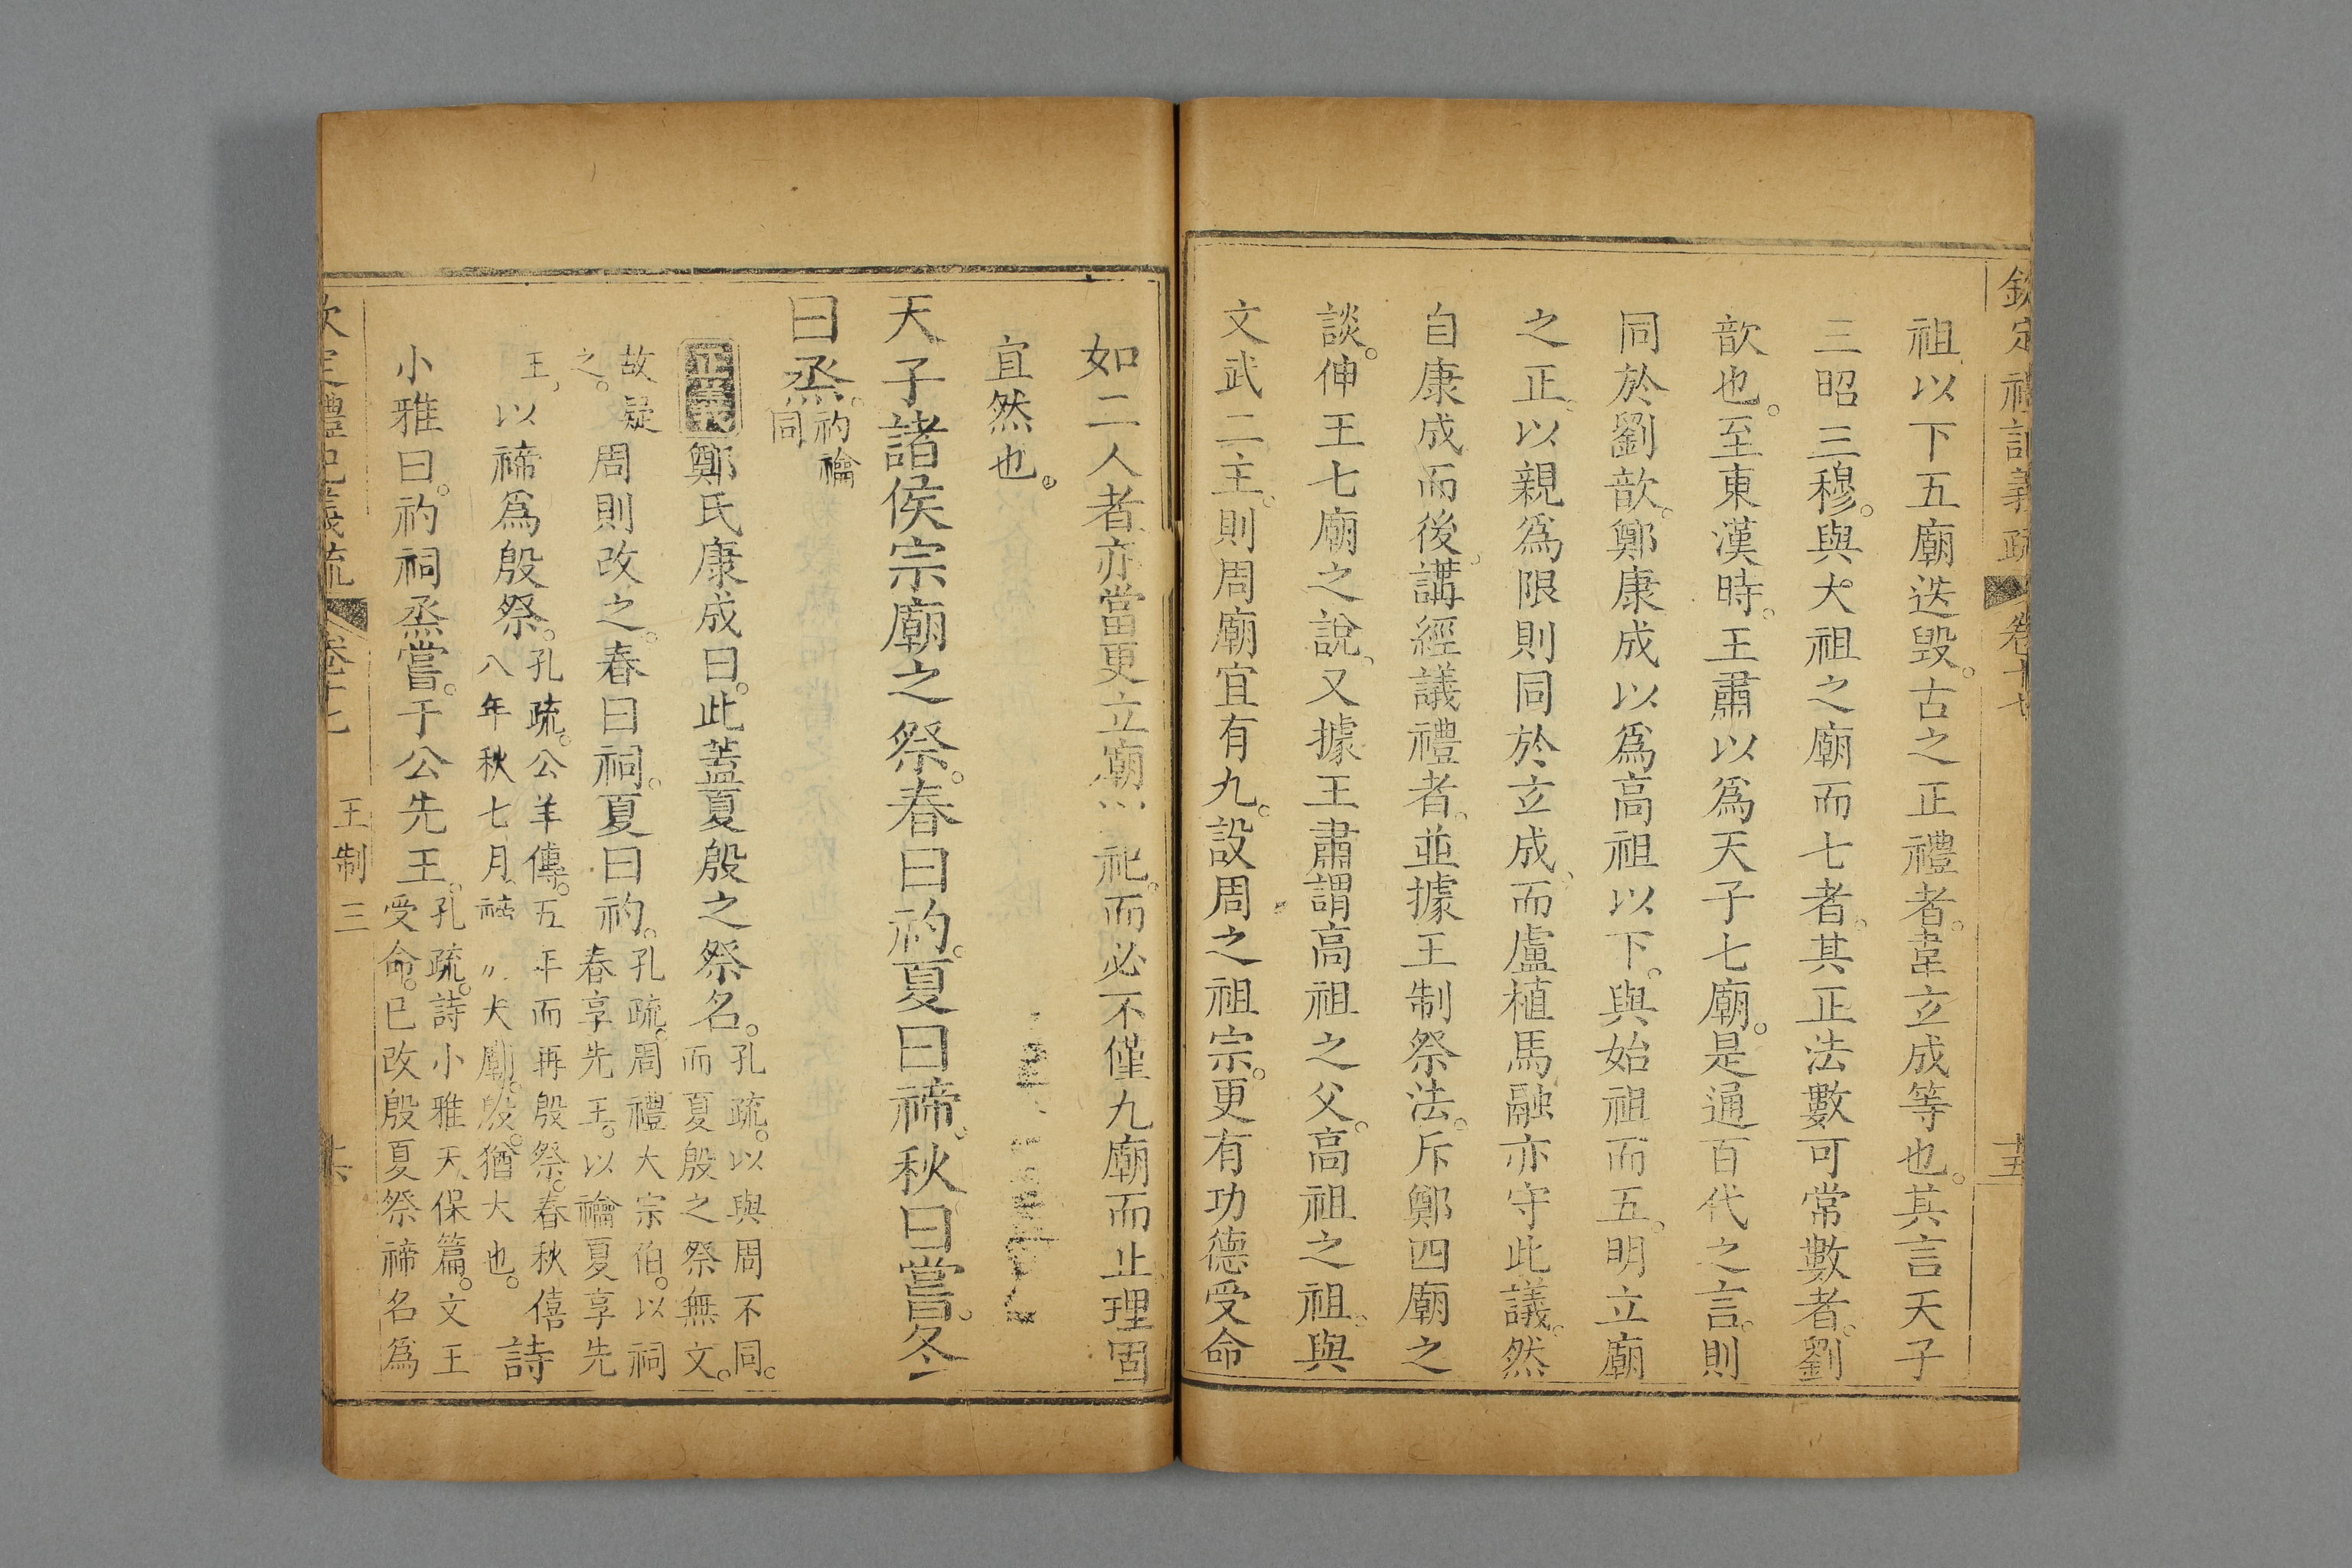 欽定禮記義疏 卷十七 十五
祖以下五廟迭毀。古之正禮者。韋立成等也。其言天子
三昭三穆。與大祖之廟而七者。其正法數可常數者。劉
歆也。至東漢時。王肅以爲天子七廟。是通百代之言。則
同於劉歆。鄭康成以爲高祖以下。與始祖而五。明立廟
之正。以親爲限則同於立成。而盧植馬融亦守此議。然
自康成而後。講經議禮者。並據王制祭法。斥鄭四廟之
談。伸王七廟之說。又據王肅謂高祖之父。高祖之祖。與
文武二主。則周廟宜有九。設周之祖宗。更有功德受命
如二人者。亦當更立廟 祀。而必不僅九廟而止。理固
宜然也。
天子諸侯宗廟之祭。春曰礿。夏曰禘。秋曰嘗。冬
曰烝。礿禴
同
正義鄭氏康成曰。此蓋夏殷之祭名。孔疏。以與周不同。
而夏殷之祭無文。
故疑
之。周則改之。春曰祠。夏曰礿。孔疏。周禮大宗伯。以祠
春享先王。以禴夏享先
王、以禘爲殷祭。孔疏。公羊傳。五年而再殷祭。春秋僖
八年秋七月。禘 大廟。殷。猶大也。詩
小雅曰。礿祠烝嘗。于公先王。孔疏。詩小雅天保篇。文王
受命。已改殷夏祭禘名爲
欽定禮記義疏 卷十七 王制三